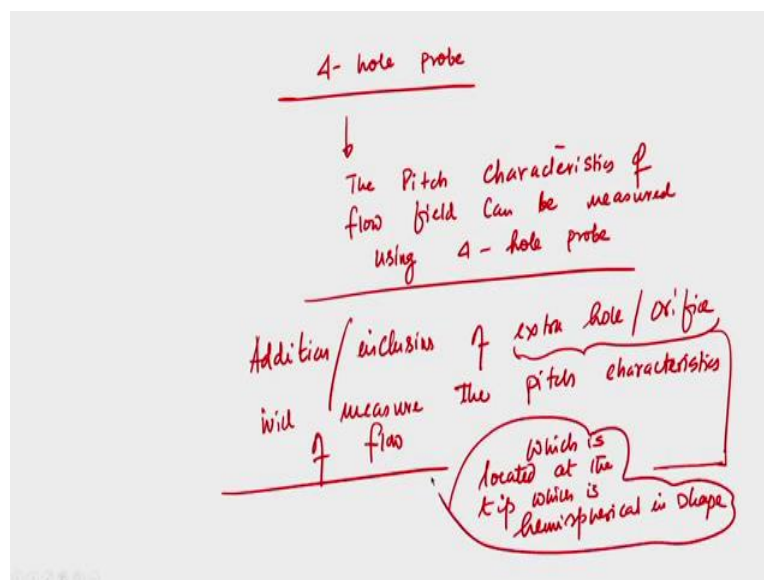 4- hole probe
The Pitch characteristics of
flow field can be measured
using 4 - hole probe
Addition / inclusion of extra hole / orifice
will measure the pitch characteristics
of flow
which is
located at the
tip which is
hemispherical in shape